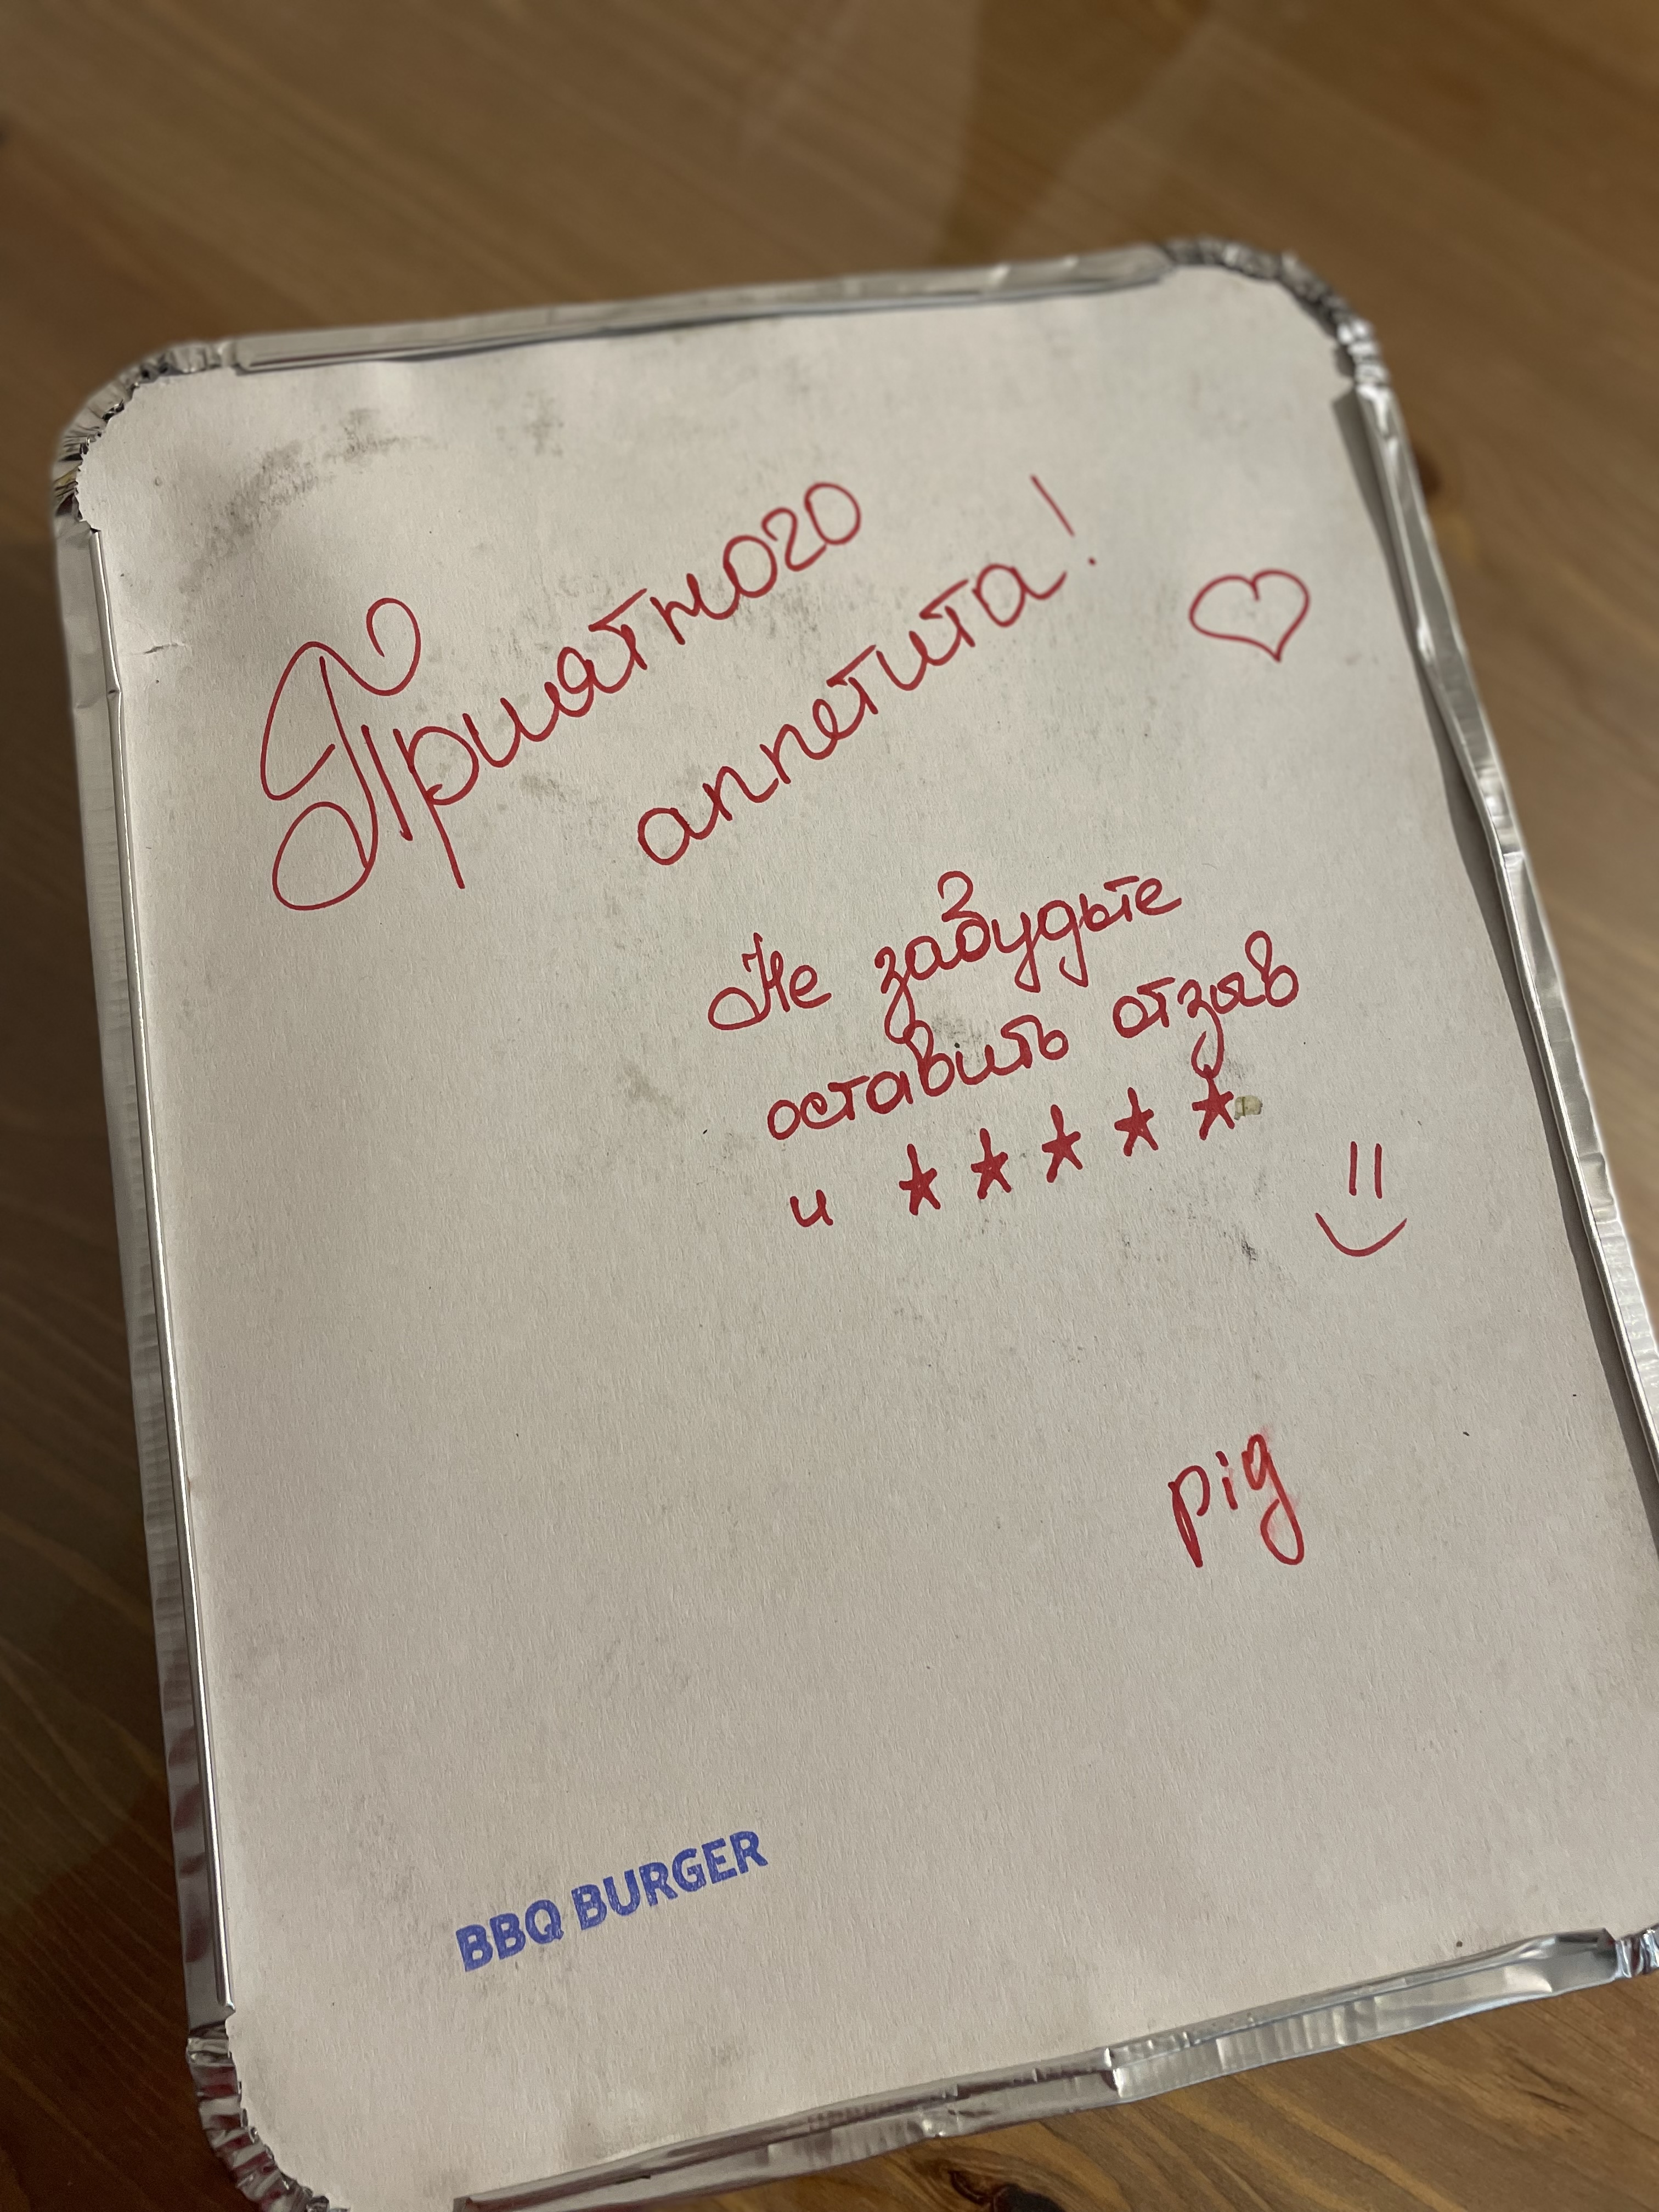 Приятного
аппетита!
Не забудьте
оставить отзыв
и ★★★★★
pig
BBQ BURGER